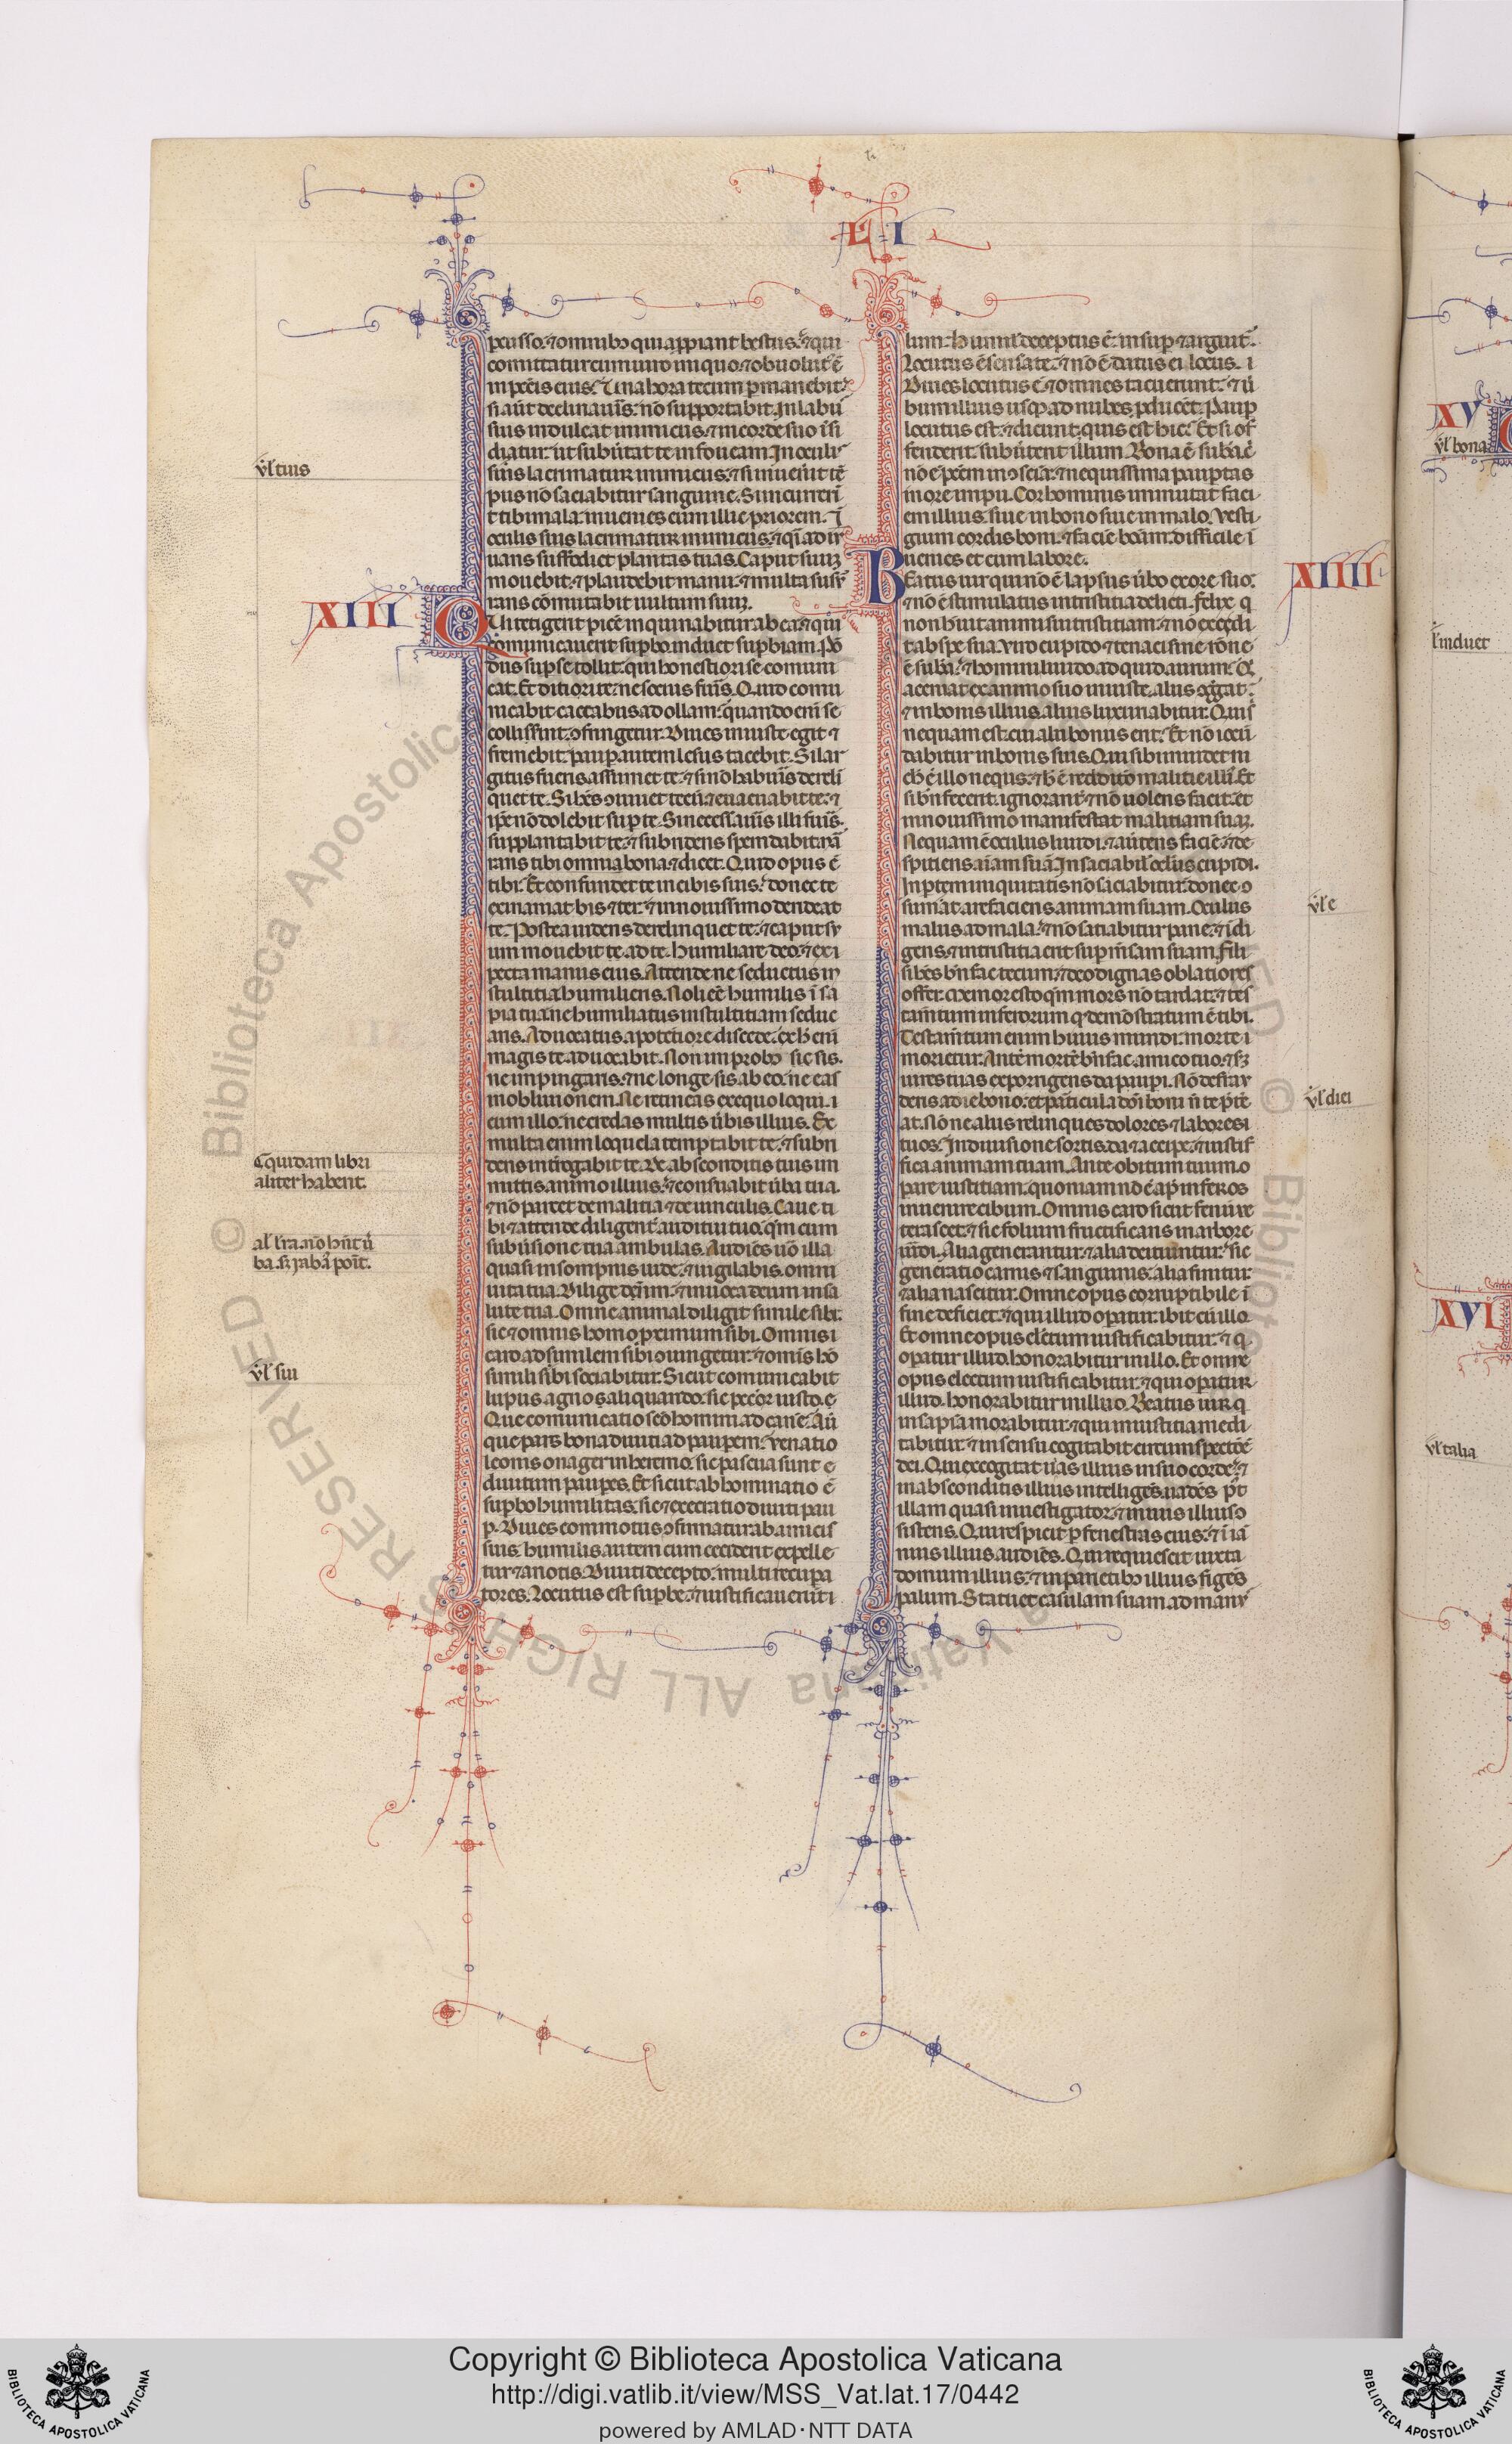 LI
pcusso. ⁊ omnibꝫ qui appiant bestiis. ⁊ qui
comittatur cum uiro iniquo. ⁊ obuolut᷒ ē
in pctīs eius. Vna hora tecum pmanebit.
si aūt declinaueris: nō supportabit. In labiis
suis indulcat inimicus. ⁊ in corde suo īsi
diatur: ut subūtat te in foueam. In oculis
suis lacrimatur inimicus. ⁊ si inuenit tē
pus nō saciabitur sanguine. Si incurrerī
t tibi mala: inuenies eum illic priorem. ī
oculis suis lacrimatur inimicus. ⁊ q̄i adiu
uans suffodiet plantas tuas. Caput suuꝫ
mouebit. ⁊ plaudebit manu. ⁊ multa susur
rans cōmutabit uultum suuꝫ.
XIII
Qui tetigerit picē inquinabitur ab ea. ⁊ qui
cōmunicauerit supbo induet supbiam. Pō
dus sup se tollit: qui honestiori se comuni
cat. Et ditiori te: ne socius fuīs. Quid comu
nicabit caccabus ad ollam: quando eni se
collisserint: ↄfringetur. Diues iniuste egit ⁊
fremebit: paup autem lesus tacebit. Si lar
gitus fueris assumet te. ⁊ si nō habuīs dereli
quet te. Si habes ↄuiuet tecū. ⁊ euacuabit te. ⁊
ipe nō dolebit sup te. Si necessarius illi fuīs:
supplantabit te. ⁊ subridens spem dabit nar
rans tibi omnia bona. ⁊ dicet. Quid opus ē
tibi. Et confundet te in cibis suis: donec te
exinaniat bis ⁊ ter. ⁊ in nouissimo derideat
te. Postea uidens derelinquet te. ⁊ caput su
um mouebit te ad te. Humiliare deo. ⁊ ex
pecta manus eius. Attende ne seductus in
stultitia humilieris. Noli eē humilis ī sa
pia tua. ne humiliatus in stultitiam seduc
aris. Aduocatus a potentiore discede. ex h eni
magis te aduocabit. Non improbo sic sis.
ne inpingaris. ⁊ ne longe sis ab eo. ne eas
in obliuionem. Ne retineas ex equo loqui
cum illo. ne credas multis ūbis illius. Ex
multa enim loquela temptabit te. ⁊ subri
dens introgabit te. de absconditis tuis im
mittis animo illius. ⁊ conseruabit ūba tua.
⁊ nō parcet de malitia ⁊ de uinculis. Caue ti
bi ⁊ attende diligent auditui tuo. qm cum
subuersione tua ambulas. Audiēs uō illa
quasi in sompnis uide. ⁊ uigilabis. omni
uita tua. Dilige deum. ⁊ inuoca deum in sa
lute tua. Omne animal diligit simile sibi:
sic ⁊ omnis homo pximum sibi. Omnis
caro ad similem sibi ↄiungetur. ⁊ omis ho
simili sibi sociabitur. Sicut comunicabit
lupus agno aliquando: sic peccor iusto.
Que comunicatio scō homini ad canē. Aū
que pars bona diuiti ad paupem. venatio
leonis onager in heremo. sic pascua sunt
diuitum paupes. Et sicut abhominatio ē
supbo humilitas: sic ⁊ execratio diuiti pau
p. Diues commotus ↄfirmatur ab amicis
suis. humilis autem cum ceciderit expelle
tur ⁊ a notis. Diuiti decepto: multi recupa
tores. Locutus est supbe. ⁊ iustificauerūt i
lum: humil deceptus ē: insup ⁊ arguit.
Locutus ē sensate. ⁊ nō ē datus ei locus.
Diues locutus ē ⁊ omnes tacuerunt. ⁊ ū
bum illius usq ad nubes pducēt. Paup
locutus est. ⁊ dicunt. quis est hic. Et si of
fenderit: subūtent illum. Bona ē suba cui
nō ē pctm in ↄscīa. ⁊ nequissima pauptas
in ore impii. Cor hominis immutat faci
em illius. siue in bono siue in malo. Vesti
gium cordis boni. ⁊ facie bonā. difficile ī
uenies et cum labore.
XIIII
Beatus uir qui nō ē lapsus ūbo ex ore suo:
⁊ nō ē stimulatus in tristitia delicti. Felix q
non huit animi sui tristitiam. ⁊ nō excidi
t ab spe sua. Viro cupido ⁊ tenaci sine rōne
ē suba. ⁊ homini liuido ad quid aurum. Q
aceruat ex animo suo iniuste. aliis ↄgregat.
⁊ in bonis illius alius luxuriabitur. Qui s
nequam est. cui alii bonus erit. Et nō iocū
dabitur in bonis suis. Qui sibi inuidet ni
ch ē illo neqius. ⁊ h ē redditio malitie illi. Et
si bn fecerit. ignorant ⁊ nō uolens facit. et
in nouissimo manifestat malitiam suaꝫ.
Nequam ē oculus liuidi. ⁊ auertens faciē ⁊ de
spitiens aīam suā. Insaciabil oclus cupidi.
In ptem iniquitatis nō saciabitur. donec ↄ
sumat arefaciens animam suam. Oculus
malus ad mala. ⁊ nō satiabitur pane. ⁊ īdi
gens. ⁊ in tristitia erit sup mensam suam. Fili
si habes bn fac tecum. ⁊ deo dignas oblationes
offer. Memor esto qm mors nō tardat. ⁊ tes
tam̄tum inferorum q demōstratum ē tibi.
Testam̄tum enim huius mundi: morte
morietur. Ante mortē bn fac amico tuo. ⁊ sꝫ
uires tuas exporrigens da paupi. Nō defrau
deris a die bono. et particula doni boni n te pre
at. Nōne aliis relinques dolores ⁊ labores
tuos. In diuisione sortis. da ⁊ accipe. ⁊ iusti
fica animam tuam. Ante obitum tuum o
pare iustitiam. quoniam nō ē ap inferos
inuenire cibum. Omnis caro sicut fenum ue
terascet. ⁊ sic folium fructificans in arbore
uiridi. Alia generantur. ⁊ alia deiciuntur. sic
generatio carnis ⁊ sanguinis. alia finitur
⁊ alia nascitur. Omne opus corruptibile ī
fine deficiet. ⁊ qui illud opatur. ibit cū illo.
Et omne opus electum iustificabitur. ⁊ q
opatur illud. honorabitur in illo. Et omne
opus electum iustificabitur. ⁊ qui opatur
illud. honorabitur in illuo. Beatus uir q
in sapia morabitur. ⁊ qui in iustitia medi
tabitur. ⁊ in sensu cogitabit circumspectōē
dei. Qui excogitat uias illius in suo corde. ⁊
in absconditis illius intelliges. uadēs pt
illam quasi inuestigator. ⁊ in uiis illius ↄ
sistens. Qui respicit p fenestras eius. ⁊ ī ia
nuis illius audiēs. Qui requiescit iuxta
domum illius. ⁊ in parietibꝫ illius figēs
palum. Statuet casulam suam ad manꝰ
vl tuis
quidam libri
aliter habent.
al lra nō hūt ū
ba. s. iabā poīt.
vl sui
vl e
vl diei
XV
vl bona
induet
XVI
vl talia
Copyright © Biblioteca Apostolica Vaticana
http://digi.vatlib.it/view/MSS_Vat.lat.17/0442
powered by AMLAD·NTT DATA
BIBLIOTECA APOSTOLICA VATICANA
BIBLIOTECA APOSTOLICA VATICANA